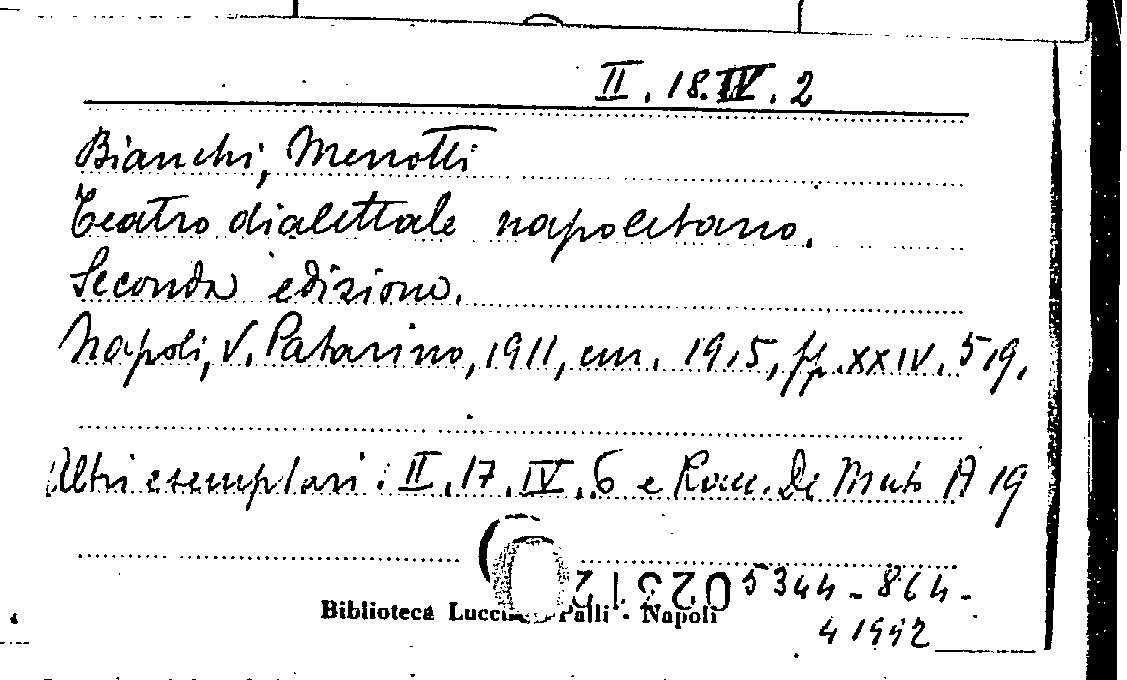 II. 18. IV. 2
Bianchi, Menotti
Teatro dialettale napoletano.
Seconda edizione.
Napoli, V. Patarino, 1911, cm. 19.5, pp. XXIV. 519.
Altri esemplari: II. 17. IV. 6 e Racc. De Mut. A 19
5344 - 864 -
Biblioteca Lucchesi Palli - Napoli
41992